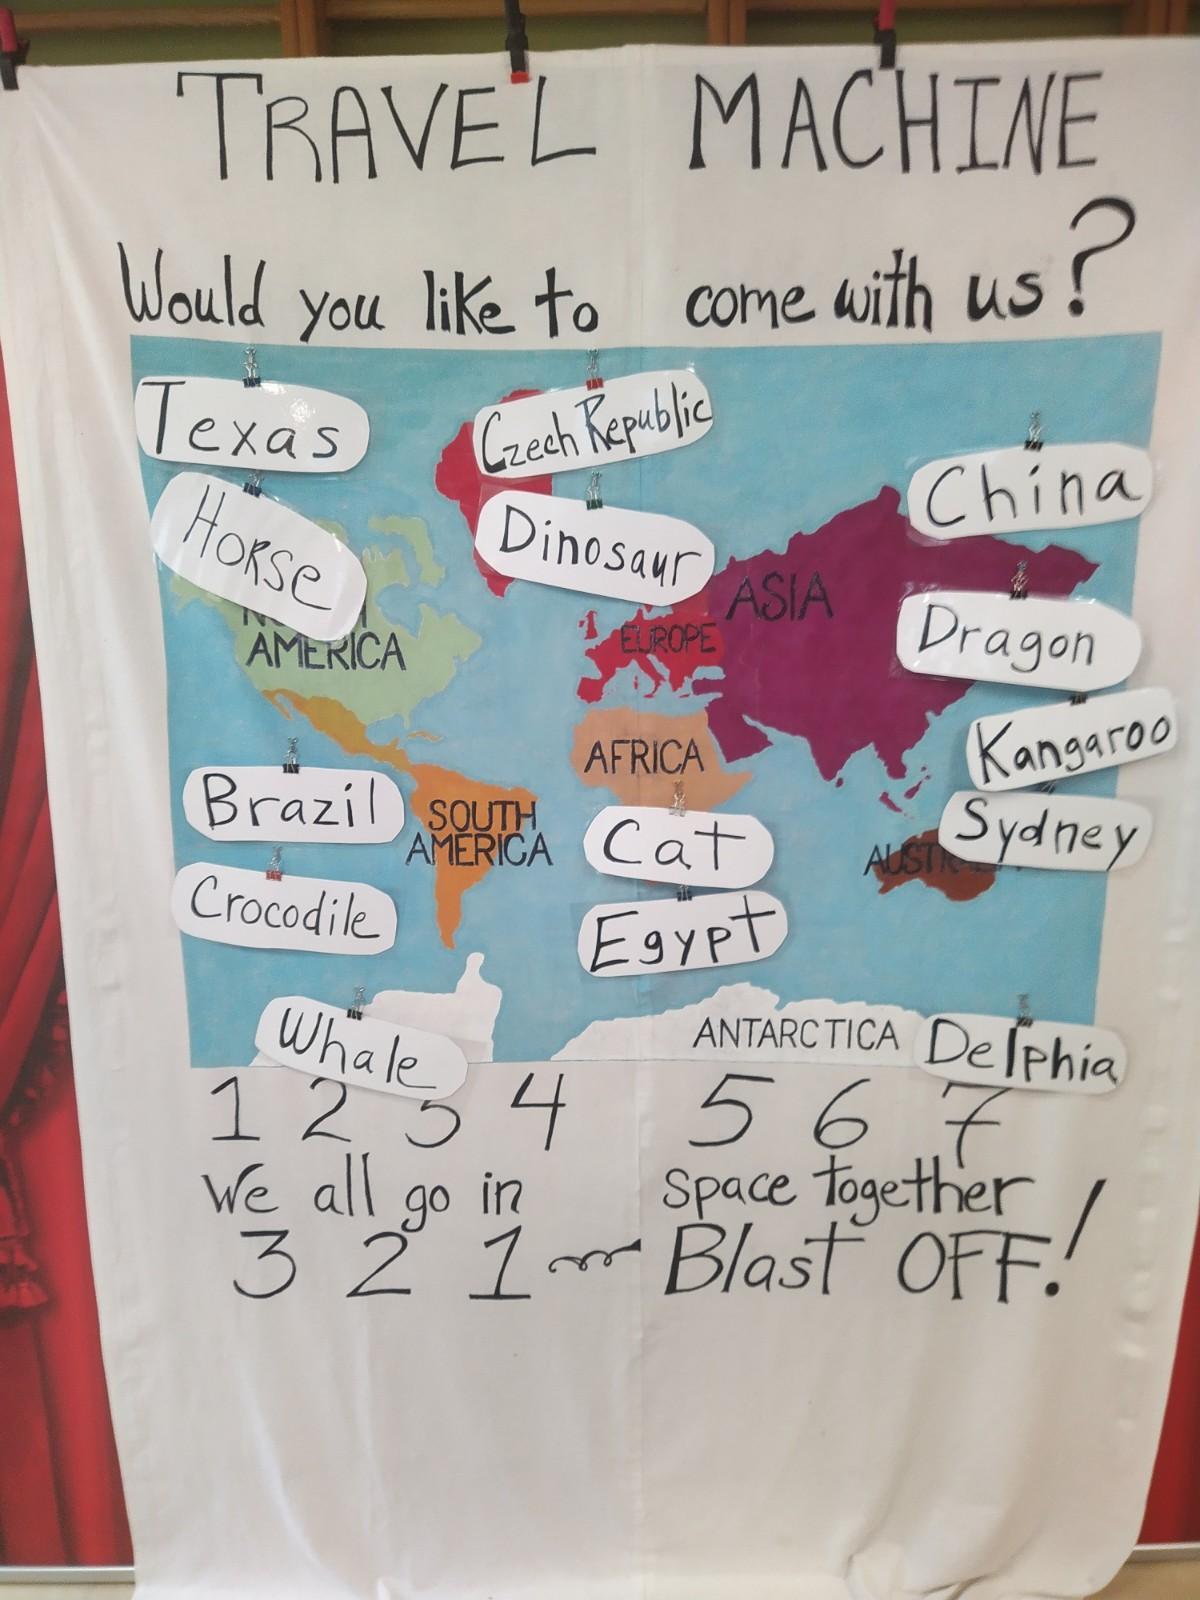 TRAVEL MACHINE
Would you like to come with us?
Texas
Czech Republic
China
Horse
Dinosaur
Dragon
AMERICA
EUROPE
ASIA
Kangaroo
AFRICA
Brazil
SOUTH
AMERICA
Cat
Sydney
Crocodile
Egypt
Whale
ANTARCTICA
Delphia
1 2 3 4 5 6 7
We all go in space together
3 2 1 Blast OFF!